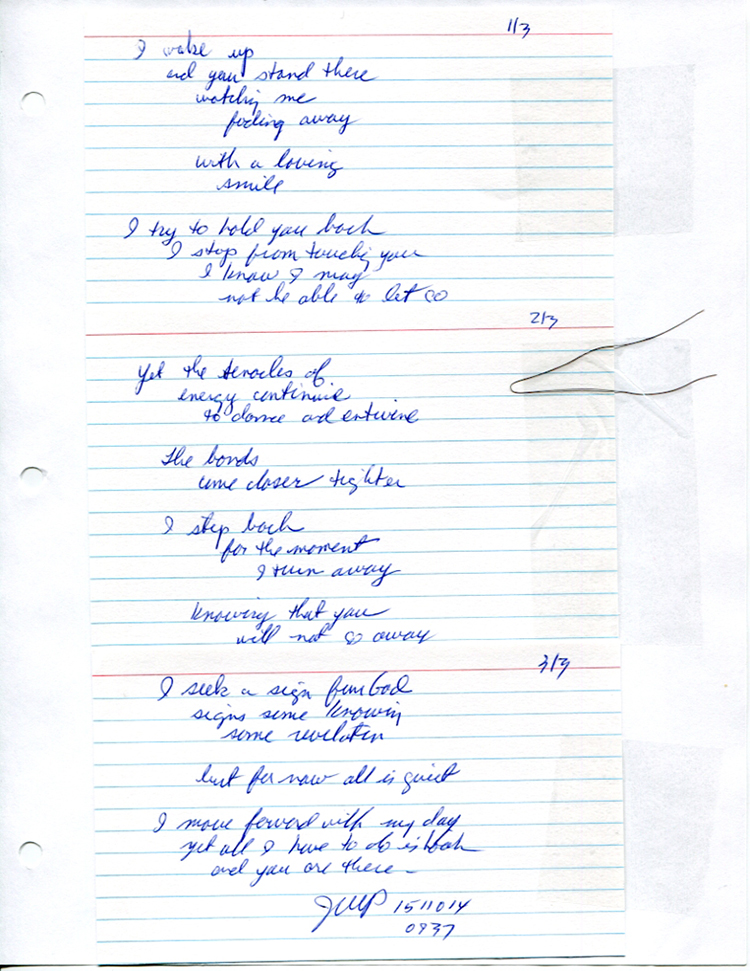 1/3
I wake up
and you stand there
watching me
fading away
with a loving
smile
I try to hold you back
I stop from touching you
I know I may
not be able to let go
2/3
Yet the tenacles of
energy continue
to dance and entwine
the bonds
come closer tighter
I step back
for the moment
I turn away
knowing that you
will not go away
3/3
I seek a sign from God
signs some knowing
some revelation
but for now all is quiet
I move forward with my day
yet all I have to do is look
and you are there
JWP 1511014
0937